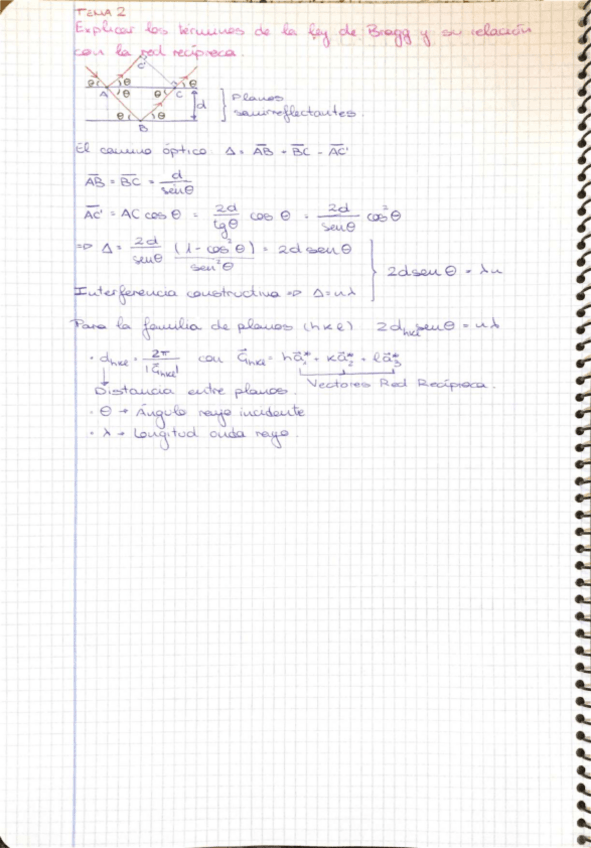 TEMA 2
Explicar los términos de la ley de Bragg y su relación
con la red recíproca.
C'
θ θ θ
A θ θ C d
Planos
semirreflectantes.
θ θ
B
El camino óptico Δ = AB + BC - AC'
AB = BC = d / senθ
AC' = AC cos θ = 2d / tgθ cos θ = 2d / senθ cos²θ
=> Δ = 2d / senθ (1 - cos²θ) = 2d senθ
sen²θ
2d senθ = λn
Interferencia constructiva => Δ = nλ
Para la familia de planos (hkl) 2d_hkl senθ = nλ
· d_hkl = 2π / |G_hkl| con G_hkl = ha₁* + ka₂* + la₃*
Distancia entre planos. Vectores Red Recíproca.
· θ → Ángulo rayo incidente
· λ → Longitud onda rayo.